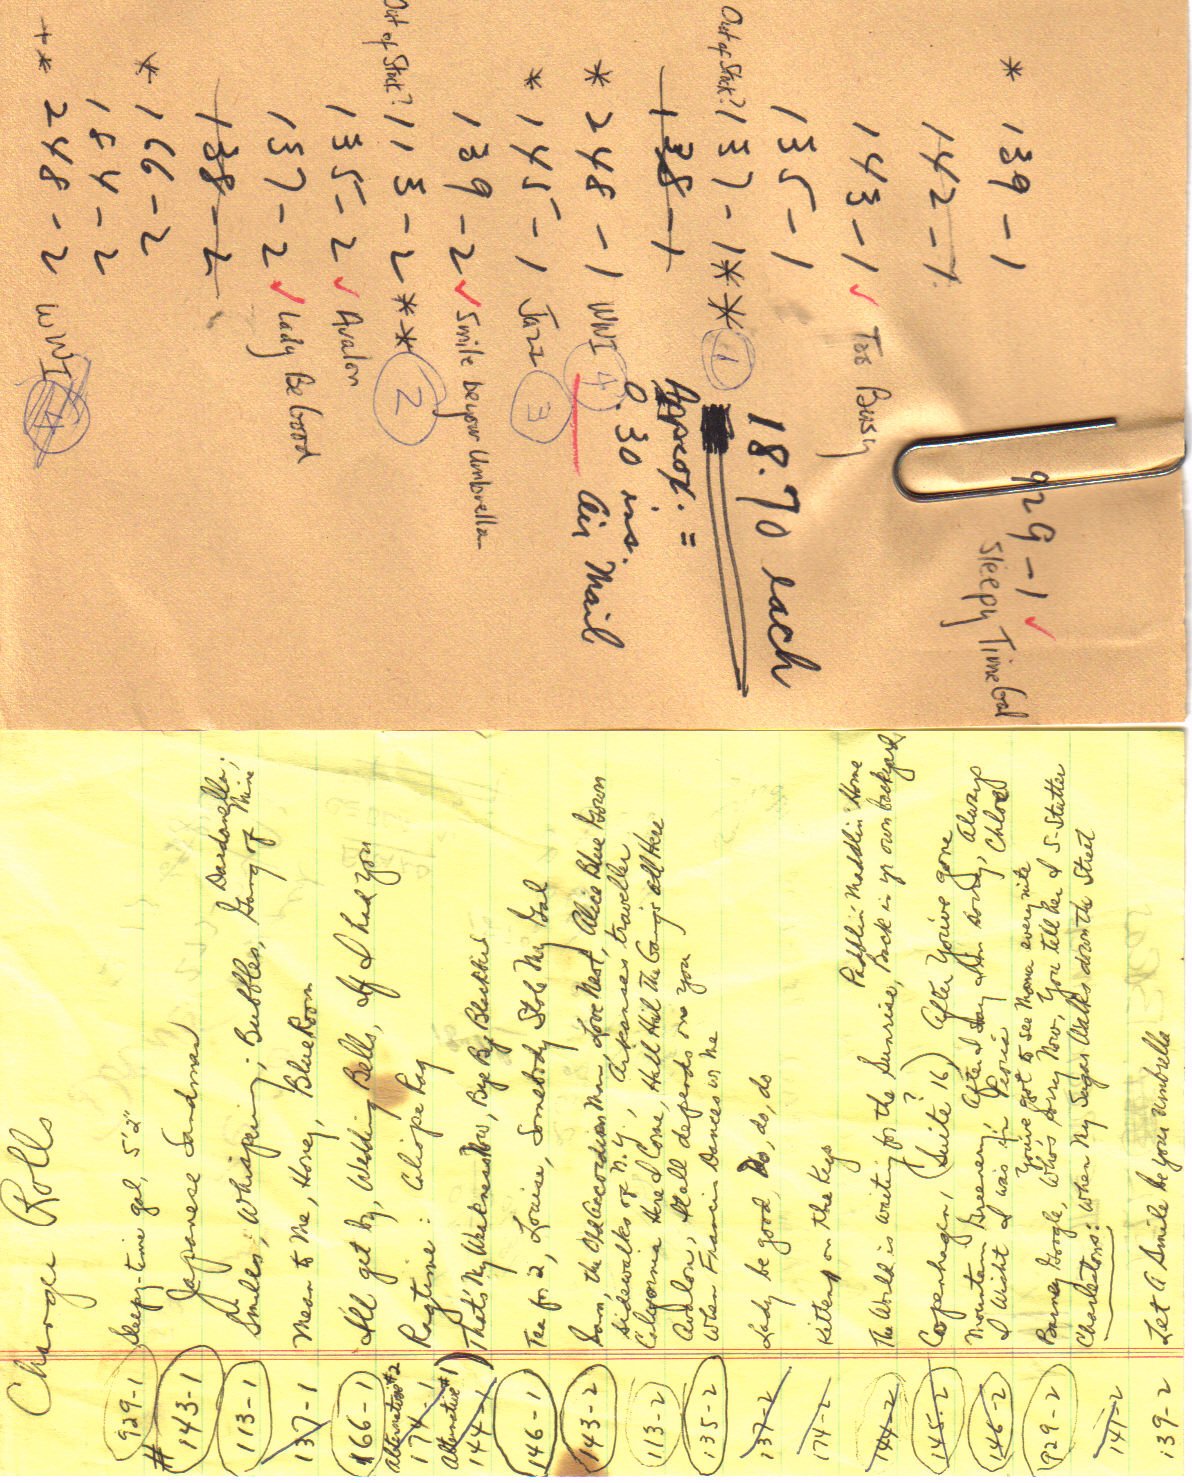 929-1 ✓ Sleepy Time Gal
* 139-1
142-1
143-1 ✓ Too Busy
135-1
Out of Stock? 137-1** 1
138-1
* 248-1 WWI 4
* 145-1 Jazz 3
139-2 ✓ Smile be your Umbrella
Out of Stock? 113-2** 2
135-2 ✓ Avalon
137-2 ✓ Lady Be Good
138-2
* 166-2
154-2
+* 248-2 WWI 4
18.70 each
Approx. =
0.30 ins.
Air Mail
Charge Rolls
929-1 Sleepy-time gal, 5'2"
# 143-1 Japanese Sandman
113-1 Smiles, Whispering; Bubbles, Dardanella;
Gang of Mine
137-1 Mean to Me, Honey, Blue Room
166-1 I'll get by, Wedding Bells, If I had you
alternative #2
174-1 Ragtime: Caliope Rag
alternative #1
144-1 That's My Weakness Now, Bye Bye Blackbird
146-1 Tea for 2, Louise, Somebody Stole My Gal
143-2 Sam, the Old Accordion Man, Love Nest, Alice Blue Gown
Sidewalks of N.Y., Arkansas traveller
113-2 California Here I Come, Hail Hail the Gang's all Here
135-2 Avalon, It all depends on you
When Francis Dances w Me
137-2 Lady be good, Do, do, do
174-2 Kitten on the Keys
Paddlin Maddlin' Home
144-2 The World is waiting for the Sunrise, Back in yr own backyard
145-2 Copenhagen, (Suite 16)? After You've gone
146-2 Mountain Greenery, After I say I'm sorry, Always
I Wisht I was in Peoria Chloe
You've got to see Mama every nite
929-2 Barney Google, Who's Sorry Now, You tell her I S-Stutter
Charlestons: When My Sugar Walks down the Street
147-2
139-2 Let A Smile be your Umbrella